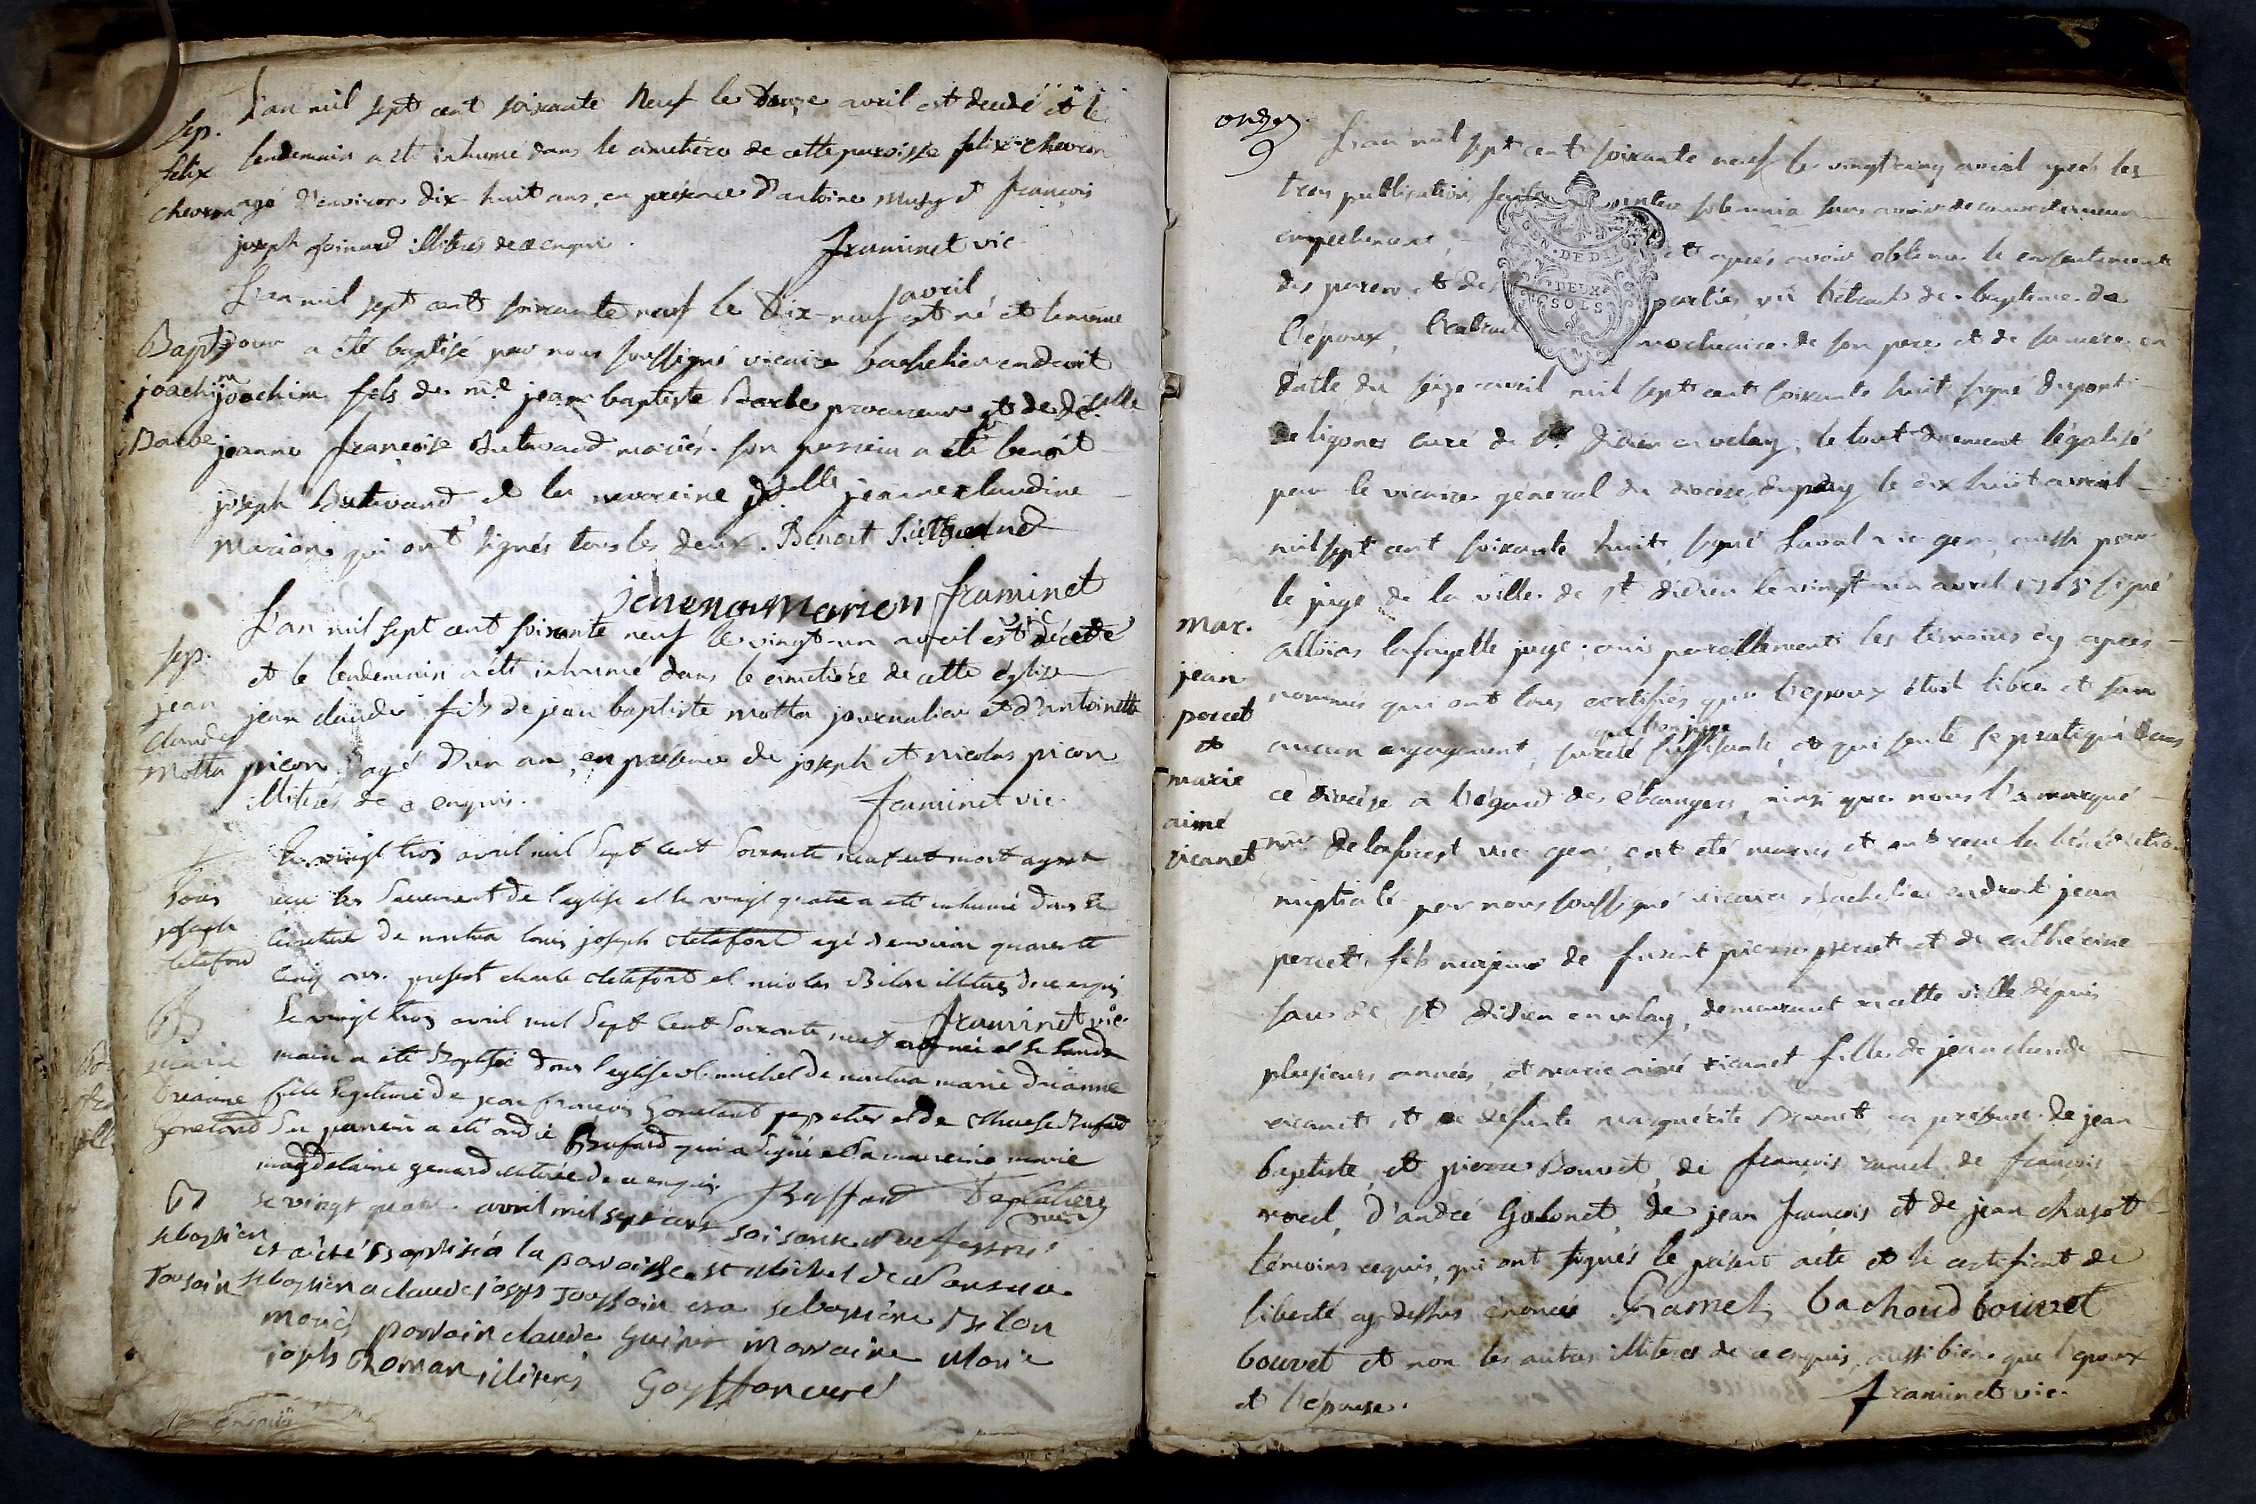 L'an mil sept cent soixante neuf le douze avril est decedé et le
sep. felix chevron
lendemain a été inhumé dans le cimetiere de cette paroisse felix chevron
agé d'environ dix-huit ans, en présence d'antoine Musy et françois
joseph goinard illiterés de ce enquis. framinet vic.
L'an mil sept cent soixante neuf le dix-neuf avril est né et le meme
Bapt. joachim Barbe
jour a été baptisé par nous soussigné vicaire bachelier en droit
joachim fils de me. jean baptiste Barbe procureur et de delle
jeanne françoise mariés. son parrein a été benoit
joseph et la marreine delle jeanne claudine
Marion qui ont signés tous les deux. Benoit
jane Marion framinet vic
L'an mil sept cent soixante neuf le vingt-un avril est décédé
sep. jean claude Motta
et le lendemain a été inhumé dans le cimetière de cette église
jean claude fils de jean baptiste motta journalier et d'antoinette
picon, agé d'un an, en presence de joseph et nicolas picon
illiterés de ce enquis. framinet vic.
Le vingt trois avril mil sept cent soixante neuf est mort ayant
louis joseph
recu les sacrement de l'eglise et le vingt quatre a été inhumé dans le
cimetiere de nantua louis joseph agé d'environ quarante
cinq ans. present charle et nicolas Bilon illiteres de ce enquis
framinet vic.
Le vingt trois avril mil sept cent soixante neuf est née et le lende
B marie drianne
main a été Baptisée dans l'eglise st. michel de nantua marie drianne
fille legitime de jean françois papetier et de
Son parrein a été andré Buffard qui a signé et la marreine marie
magdelaine genard illiterée de ce enquis Buffard
B sebastien Tousain
le vingt quatre avril mil sept cent soisante et neuf
et a été Baptisé a la paroisse st Michel de Nantua
sebastien a claude joseph Toussain et a sebastiene Bilon
mariés parrain claude marraine Marie
joseph Roman illiterés Goyffon curé
onze
L'an mil sept cent soixante neuf le vingt cinq avril après les
trois publications sans avoir decouvert aucun
empechement, et apres avoir obtenus le consentement
des parens et des parties, vû l'extrait de bapteme de
l'époux, mortuaire de son pere et de sa mere en
datte du seize avril mil sept cent soixante huit signé dupont
de ligones curé de st. didier en velay, le tout duement légalisé
par le vicaire général du diocèse dupuy le dix huit avril
mil sept cent soixante huit, signé Laval vic gen, aussi par
le juge de la ville de st didier le vingt un avril signé
mar. jean percet et marie aimé vicanet
lafayette juge; ouis pareillement les témoins cy apres
nommés qui ont tous certifiés que l'epoux étoit libre et sans
aucun engagement, sureté suffisante, et qui seule se pratique dans
ce diocèse a l'égard des étrangers, ainsi que nous l'a marqué
mr. Delaforest vic gen, ont été mariés et ont reçu la bénédiction
nuptiale par nous soussigné vicaire Bachelier en droit jean
percet fils majeur de furent pierre percet et de catherine
faur de st didier en velay, demeurant en cette ville depuis
plusieurs années, et marie aimé vicanet fille de jean claude
vicanet et de defunte marguérite Brunet, en présence de jean
baptiste, et pierre Bouvet, de françois ramel, de françois
d'andré Galonet, de jean françois et de jean chapot
témoins requis, qui ont signés le présent acte et le certificat de
liberté cy dessus énoncé Ramel bachoud bouvet
bouvet et non les autres illiteres de ce enquis aussi bien que l'epoux
et l'épouse. framinet vic.
GEN. DE D
DEUX SOLS